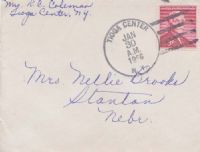 Mrs. R.C. Coleman
Tioga Center, N.Y.
TIOGA CENTER
JAN
30
A.M.
N.Y.
Mrs Nellie Brooks
Stanton
Nebr.